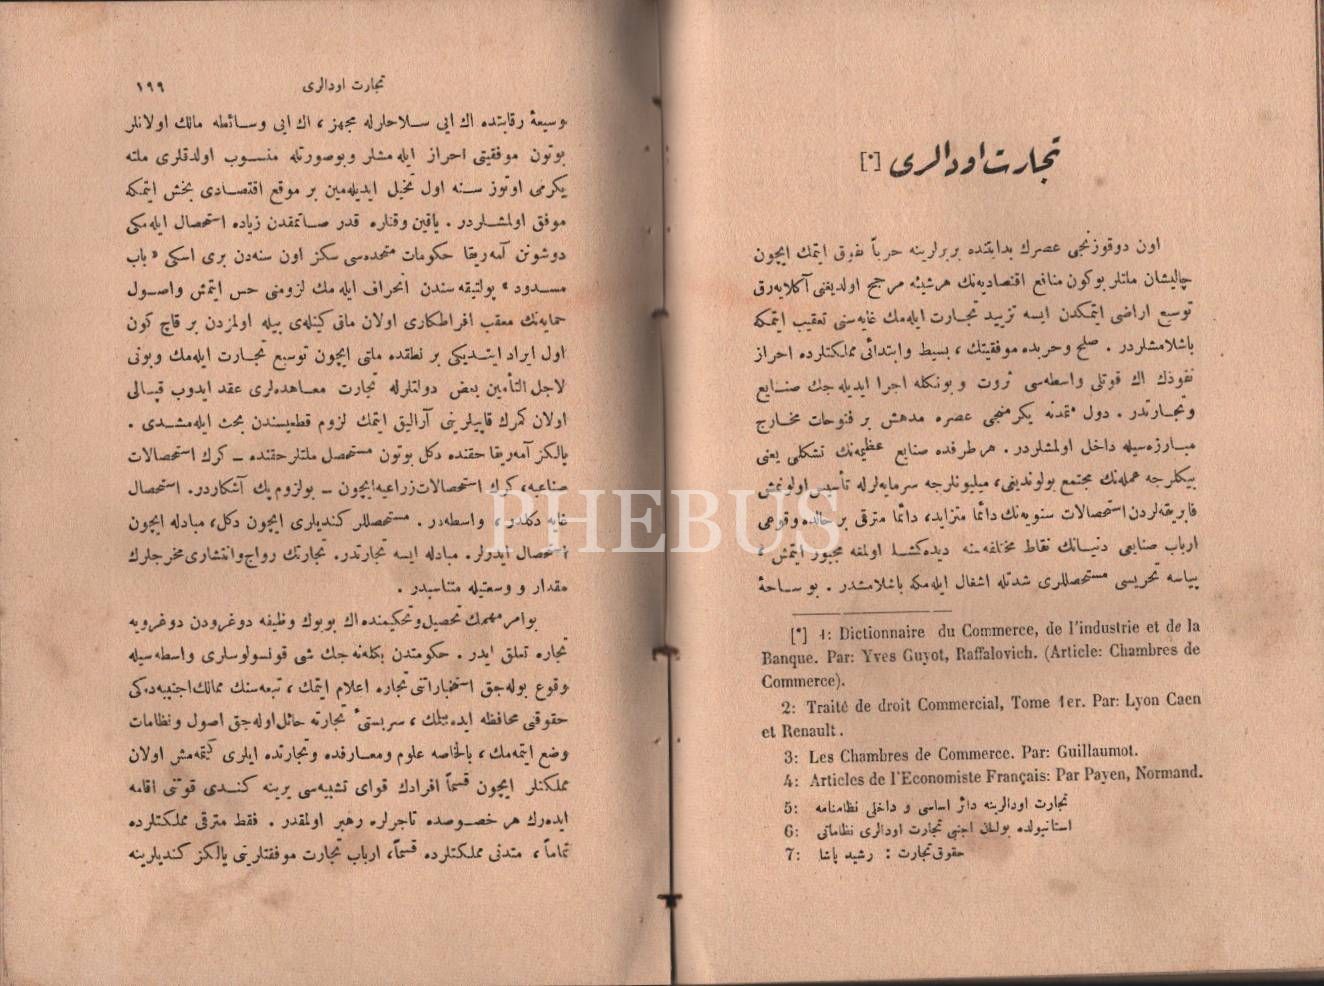 تجارت اودالری [*]
اون دوقوزنجی عصرك بدايتنده بربرلرينه حرباً تفوق ايتمك ايچون
چاليشان ملتلر بوكون منافع اقتصاديه‌نك هرشيئه مرجح اولديغنی آكلايه‌رق
توسيع اراضی ايتمكدن ايسه تزييد تجارت ايله‌مك غايه‌سنی تعقيب ايتمكه
باشلامشلردر . صلح وحربده موفقيتك ، بسيط وابتدائی مملكتلرده احراز
نفوذك اك قوتلی واسطه‌سی ثروت و بونكله اجرا ايديله جك صنايع
وتجارتدر . دول متمدنه يكرمنجی عصره مدهش بر فتوحات مخارج
مبارزه‌سيله داخل اولمشلردر . هر طرفده صنايع عظيمه‌نك تشكلی يعنی
بيكلرجه عمله‌نك مجتمع بولونديغی ، ميليونلرجه سرمايه‌لرله تأسيس اولونمش
فابريقه‌لردن استحصالات سنويه‌نك دائما متزايد ، دائما مترقی بر حالده وقوعی
ارباب صنايعی دنيانك نقاط مختلفه‌سنه ديده‌كشا اولمغه مجبور ايتمش ،
پياسه تحريسی مستحصللری شدتله اشغال ايله‌مكه باشلامشدر . بو ساحهٔ
[*] 1: Dictionnaire du Commerce, de l'industrie et de la
Banque. Par: Yves Guyot, Raffalovich. (Article: Chambres de
Commerce).
2: Traité de droit Commercial, Tome 1er. Par: Lyon Caen
et Renault.
3: Les Chambres de Commerce. Par: Guillaumot.
4: Articles de l'Economiste Français: Par Payen, Normand.
5: تجارت اودالرينه دائر اساسی و داخلی نظامنامه
6: استانبولده بولنان اجنبی تجارت اودالری نظاماتی
7: حقوق تجارت : رشيد پاشا
تجارت اودالری ١٩٩
وسيعهٔ رقابتده اك ايی سلاحلرله مجهز ، اك ايی وسائطه مالك اولانلر
بوتون موفقيتی احراز ايله مشلر وبوصورتله منسوب اولدقلری ملته
يكرمی اوتوز سنه اول تخيل ايديله‌مين بر موقع اقتصادی بخش ايتمكه
موفق اولمشلردر . ياقين وقتاره قدر صاتمقدن زياده استحصال ايله‌مكی
دوشونن آمه‌ريقا حكومات متحده‌سی سكز اون سنه‌دن بری اسكی « باب
مسدود » پولتيقه‌سندن انحراف ايله مك لزومنی حس ايتمش واصول
حمايه‌نك معقب افراطكاری اولان ماق كينله‌ی بيله اولمزدن بر قاچ كون
اول ايراد ايتديكی بر نطقده ملتی ايچون توسيع تجارت ايله‌مك وبونی
لاجل التأمين بعض دولتلرله تجارت معاهده‌لری عقد ايدوب قپالی
اولان كمرك قاپيلرينی آرالیق ايتمك لزوم قطعيسندن بحث ايله‌مشدی .
يالكز آمه‌ريقا حقنده دكل بوتون مستحصل ملتلر حقنده ــ كرك استحصالات
صناعيه ، كرك استحصالات زراعيه ايچون ــ بولزوم پك آشكاردر . استحصال
غايه دكلدر ، واسطه‌در . مستحصللر كنديلری ايچون دكل ، مبادله ايچون
استحصال ايدرلر . مبادله ايسه تجارتدر . تجارتك رواج وانتشاری مخرجلرك
مقدار و وسعتيله متناسبدر .
بوامر مهمك تحصيل وتحكيمنده اك بويوك وظيفه دوغرودن دوغرويه
تجاره تعلق ايدر . حكومتدن بكله‌نه جك شی قونسولوسلری واسطه سيله
وقوع بوله جق استخباراتی تجاره اعلام ايتمك ، تبعه‌سنك ممالك اجنبيه‌ده‌كی
حقوقنی محافظه ايده بيلمك ، سربستیٔ تجارته حائل اوله جق اصول ونظامات
وضع ايتمه‌مك ، بالخاصه علوم ومعارفده وتجارتده ايلری كيتمه‌مش اولان
مملكتلر ايچون قسماً افرادك قوای تشبيه‌سی يرينه كندی قوتنی اقامه
ايده‌رك هر خصوصده تاجرلره رهبر اولمقدر . فقط مترقی مملكتلرده
تماماً ، متدنی مملكتلرده قسماً ، ارباب تجارت موفقتلرينی يالكز كنديلرينه
PHEBUS